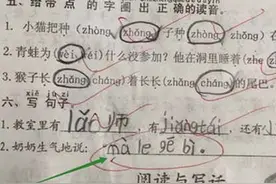 五、给带点的字圈出正确的读音。
1. 小猫把种(zhǒng zhòng)子种(zhǒng zhòng)在
2. 青蛙为(wèi wéi)什么没参加？他在洞里睡着(zhe
3. 猴子长(zhǎng cháng)着长长(zhǎng cháng)的尾巴。
xiě jù zi
六、写句子。
1. 教室里有 lǎo师, 有 jiǎngtái, 还有
2. 奶奶生气地说: mā le gē bì.
阅读与写话